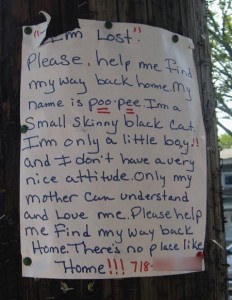 "I'm Lost"
Please, help me find
my way back home. My
name is poo-pee. I'm a
Small skinny black cat.
I'm only a little boy!!
and I don't have a very
nice attitude. Only my
mother can understand
and Love me. Please help
me find my way back
Home. There's no place like
Home!!! 718-